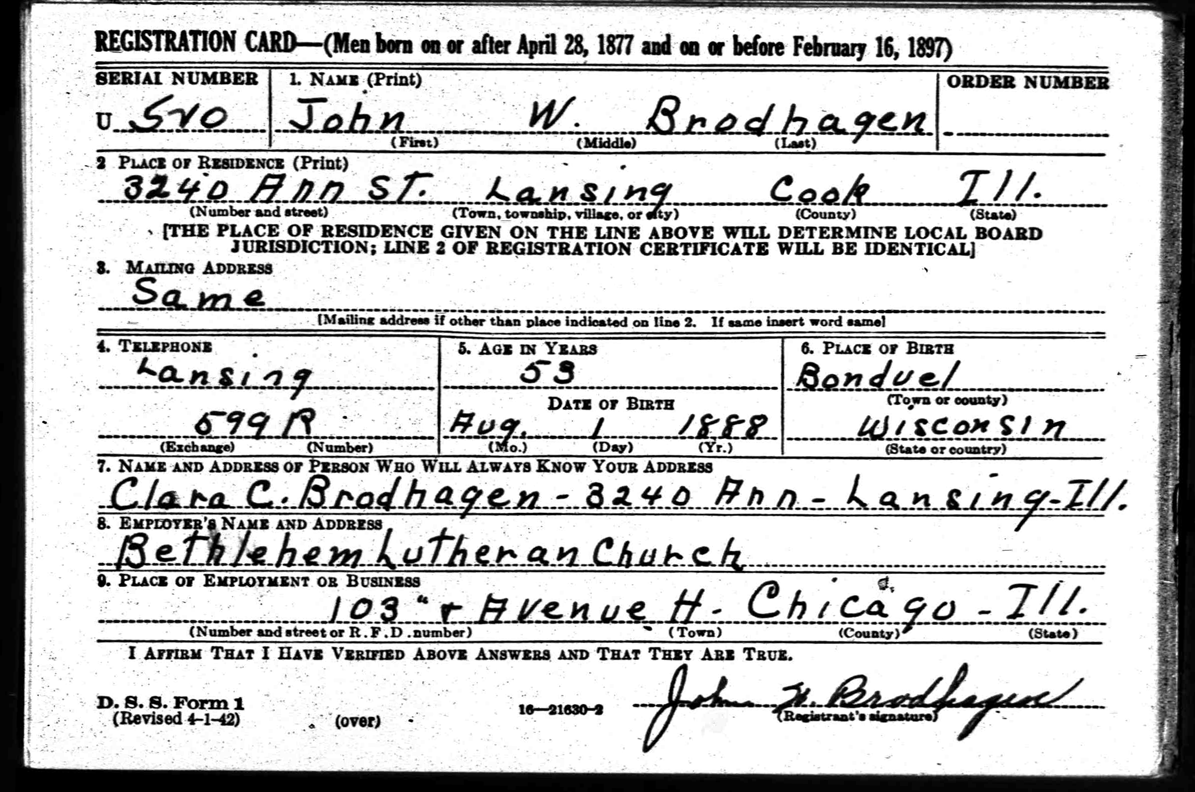 REGISTRATION CARD—(Men born on or after April 28, 1877 and on or before February 16, 1897)
SERIAL NUMBER 1. NAME (Print) ORDER NUMBER
U 520 John W. Brodhagen
(First) (Middle) (Last)
2 PLACE OF RESIDENCE (Print)
3240 Ann St. Lansing Cook Ill.
(Number and street) (Town, township, village, or city) (County) (State)
[THE PLACE OF RESIDENCE GIVEN ON THE LINE ABOVE WILL DETERMINE LOCAL BOARD
JURISDICTION; LINE 2 OF REGISTRATION CERTIFICATE WILL BE IDENTICAL]
3. MAILING ADDRESS
Same
[Mailing address if other than place indicated on line 2. If same insert word same]
4. TELEPHONE 5. AGE IN YEARS 6. PLACE OF BIRTH
Lansing 53 Bonduel
DATE OF BIRTH (Town or county)
599 R Aug. 1 1888 Wisconsin
(Exchange) (Number) (Mo.) (Day) (Yr.) (State or country)
7. NAME AND ADDRESS OF PERSON WHO WILL ALWAYS KNOW YOUR ADDRESS
Clara C. Brodhagen - 3240 Ann - Lansing - Ill.
8. EMPLOYER'S NAME AND ADDRESS
Bethlehem Lutheran Church
9. PLACE OF EMPLOYMENT OR BUSINESS
103 Avenue H. Chicago - Ill.
(Number and street or R. F. D. number) (Town) (County) (State)
I AFFIRM THAT I HAVE VERIFIED ABOVE ANSWERS AND THAT THEY ARE TRUE.
D. S. S. Form 1
(Revised 4-1-42) (over) 16—21630-2 John W. Brodhagen
(Registrant's signature)